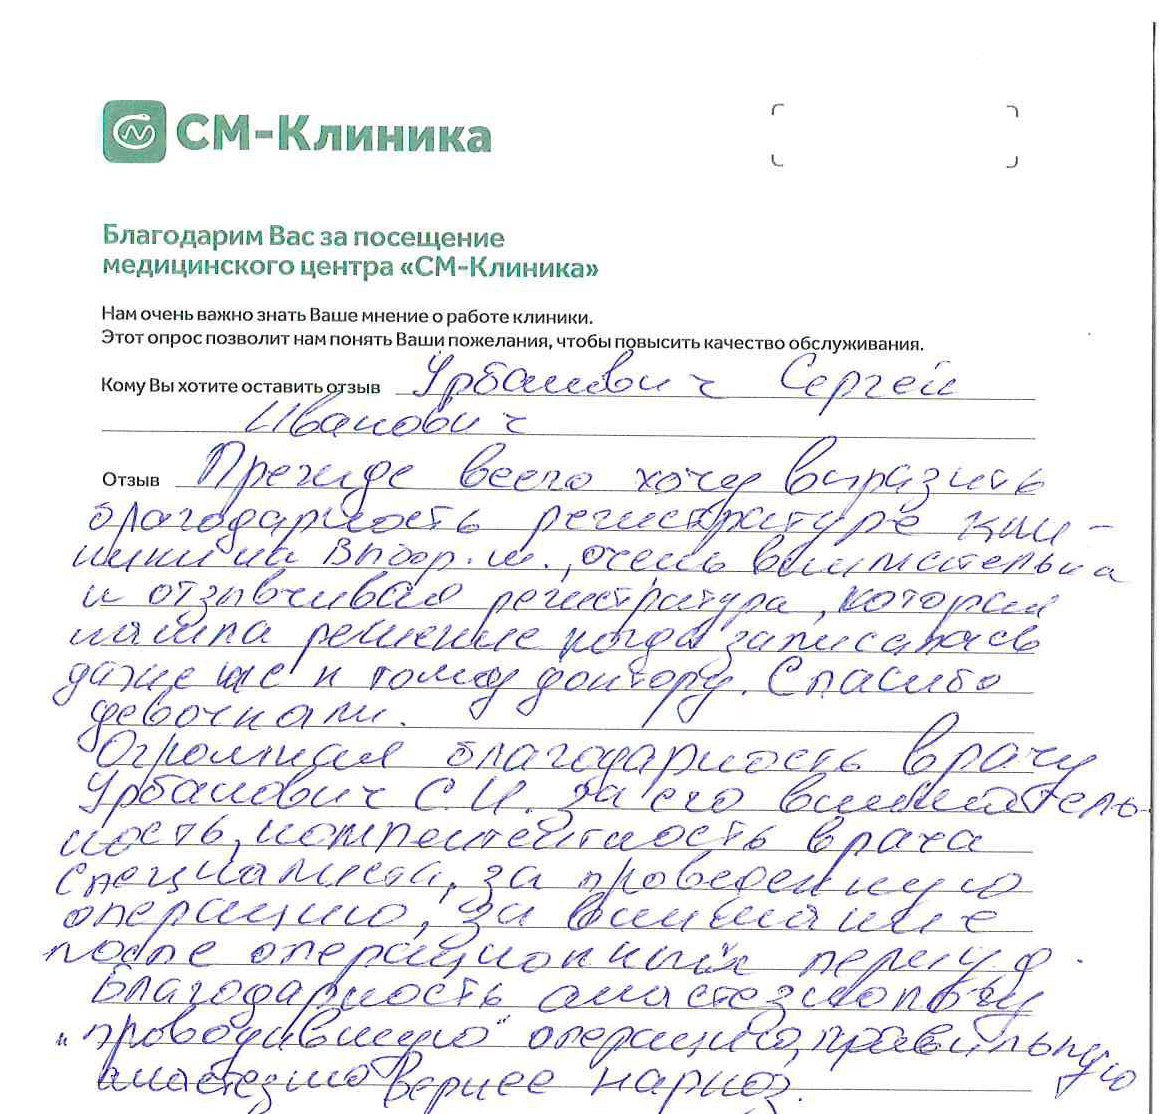 СМ-Клиника
Благодарим Вас за посещение
медицинского центра «СМ-Клиника»
Нам очень важно знать Ваше мнение о работе клиники.
Этот опрос позволит нам понять Ваши пожелания, чтобы повысить качество обслуживания.
Кому Вы хотите оставить отзыв Урбанович Сергей
Иванович
Отзыв Прежде всего хочу выразить
благодарность регистратуре кли-
ники на Выбор. ш., очень внимательна
и отзывчивая регистратура, которая
нашла решение когда записалась
даже не к тому доктору. Спасибо
девочкам.
Огромная благодарность врачу
Урбанович С.И. за его вниматель-
ность, компетентность врача
специалиста, за проведенную
операцию, за внимание
после операционных период.
Благодарность анастезиологу
"проводившую" операцию, правильную
анастезию вернее наркоз.